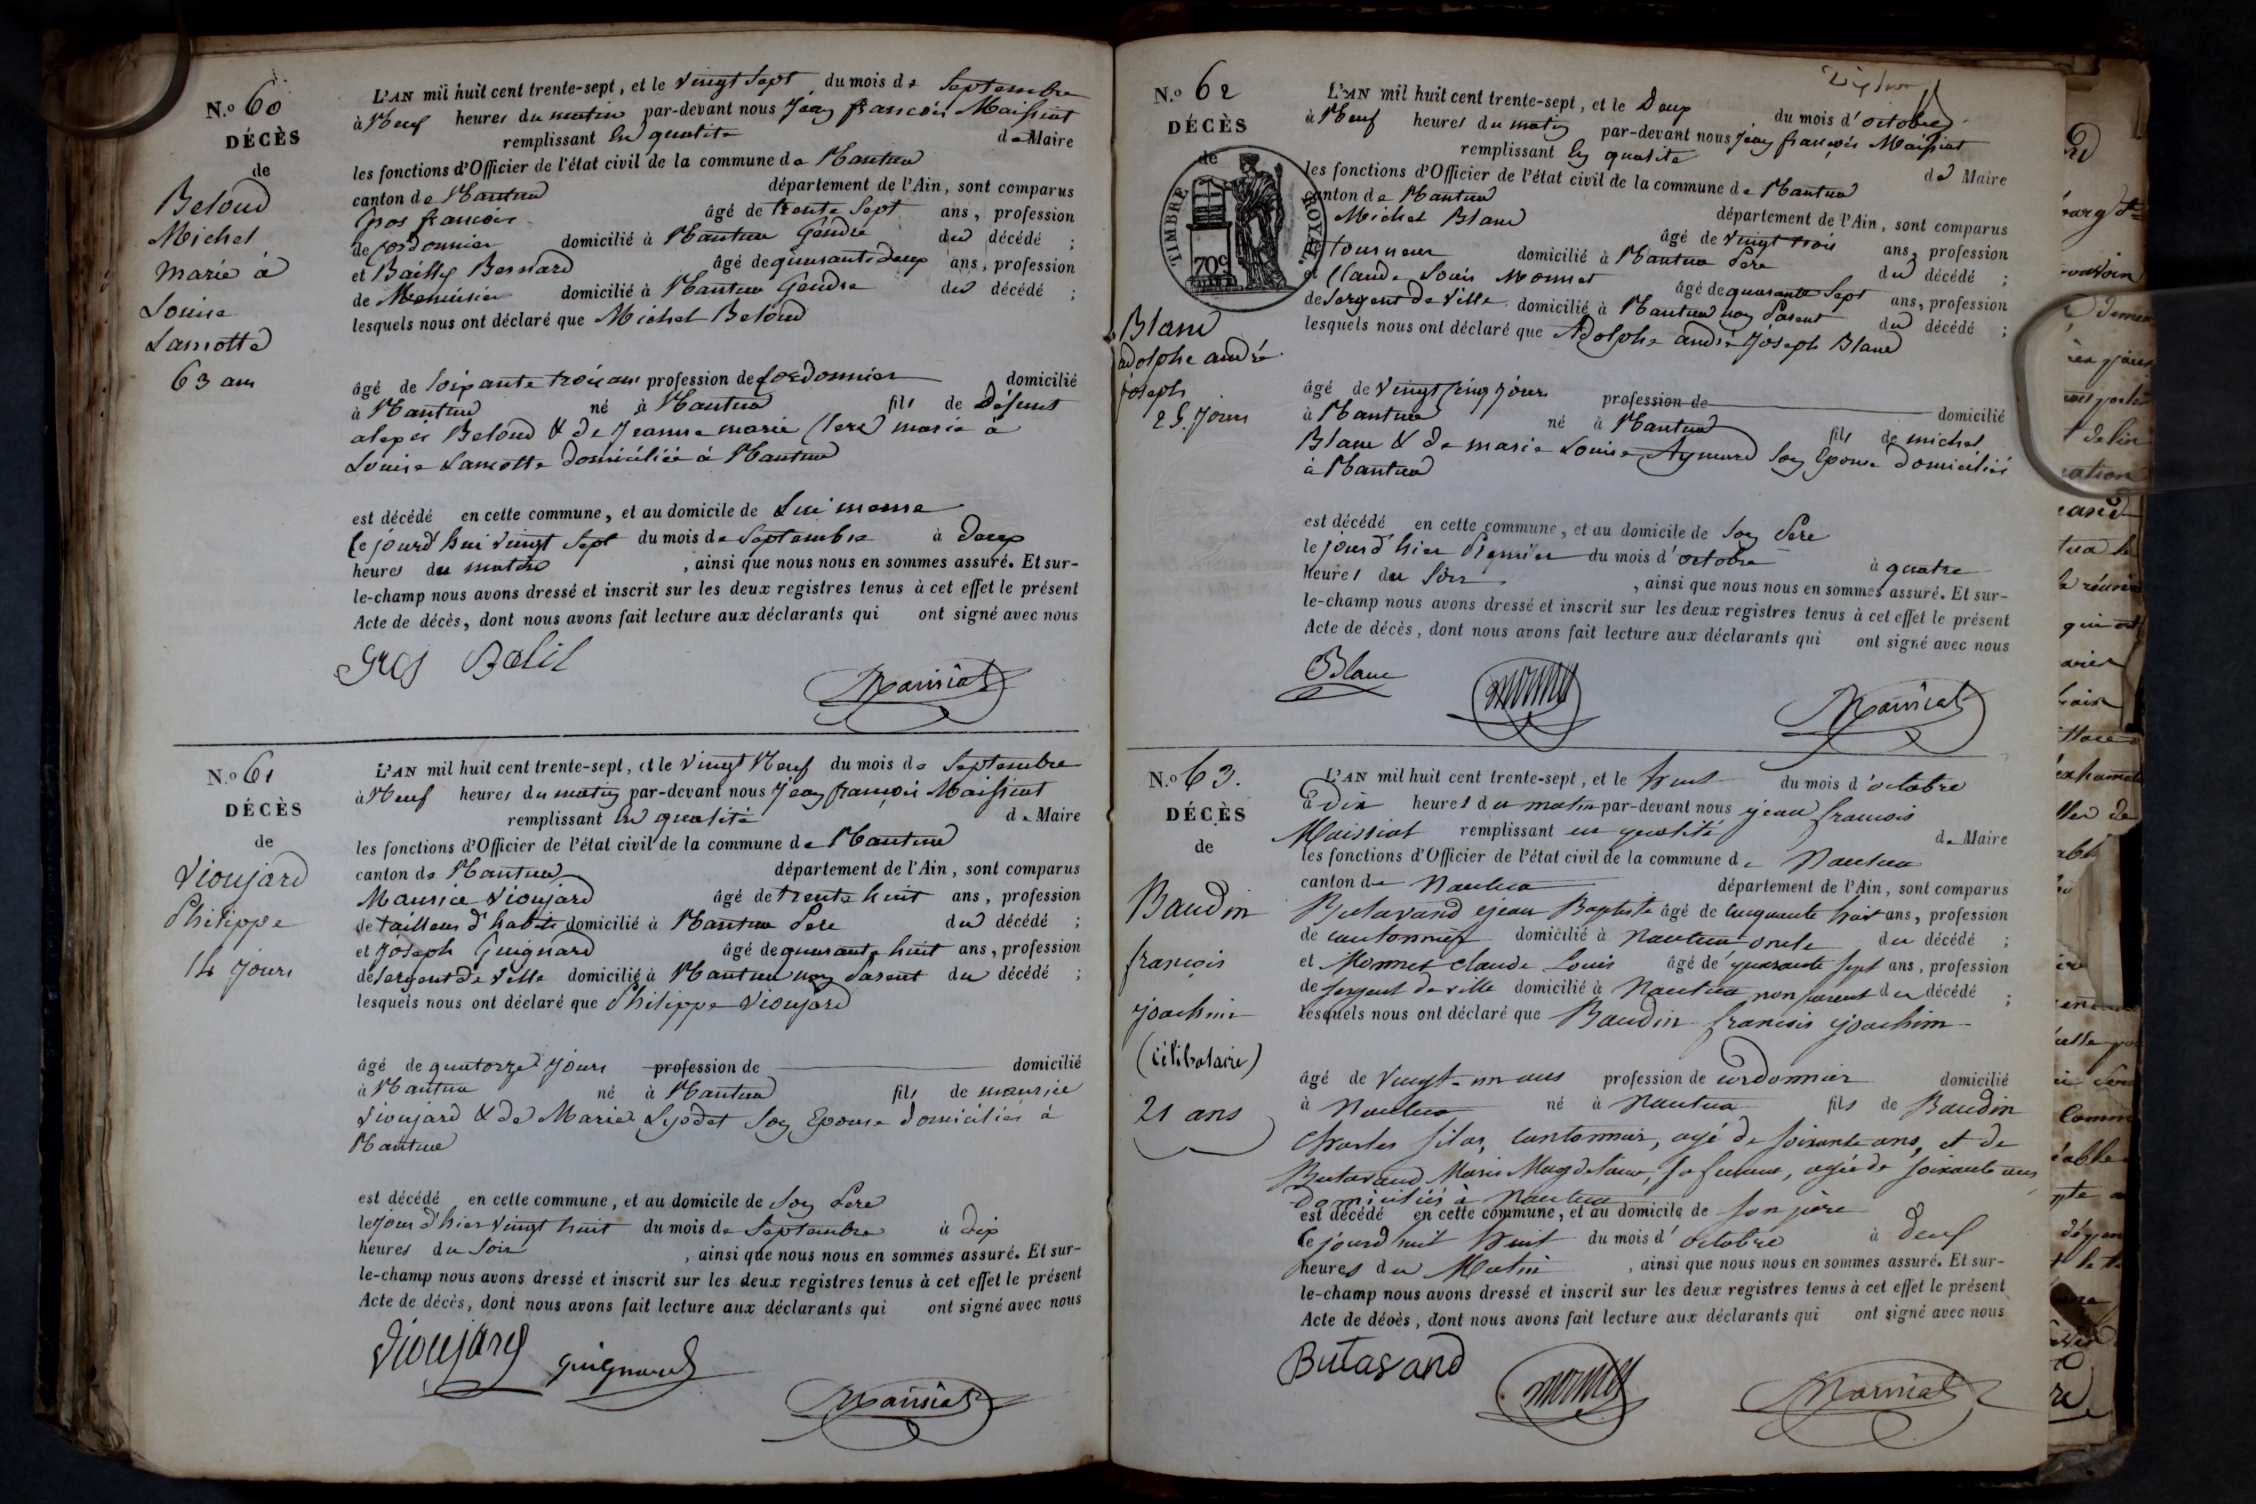 N.º 60
DÉCÈS
de
Beloud
Michel
marié à
Louise
Lamotte
63 ans
L'AN mil huit cent trente-sept, et le vingt Sept du mois de Septembre
à Neuf heures du matin par-devant nous Jean françois Maissiat
remplissant En qualité de Maire
les fonctions d'Officier de l'état civil de la commune de Nantua
canton de Nantua département de l'Ain, sont comparus
Gros francois âgé de trente Sept ans, profession
de Cordonnier domicilié à Nantua Gendre du décédé ;
et Bailly Bernard âgé de quarante deux ans, profession
de Menuisier domicilié à Nantua Gendre du décédé ;
lesquels nous ont déclaré que Michel Beloud
âgé de Soixante trois ans profession de Cordonnier domicilié
à Nantua né à Nantua fils de Défunt
alexis Beloud & de Jeanne marie Clerc marié à
Louise Lamotte domiciliée à Nantua
est décédé en cette commune, et au domicile de Lui meme
Cejourd'hui vingt Sept du mois de Septembre à Deux
heures du matin , ainsi que nous nous en sommes assuré. Et sur-
le-champ nous avons dressé et inscrit sur les deux registres tenus à cet effet le présent
Acte de décès, dont nous avons fait lecture aux déclarants qui ont signé avec nous
Gros Maissiat
N.º 61
DÉCÈS
de
Vioujard
Philippe
14 Jours
L'AN mil huit cent trente-sept, et le vingt Neuf du mois de Septembre
à Neuf heures du matin par-devant nous Jean françois Maissiat
remplissant En qualité de Maire
les fonctions d'Officier de l'état civil de la commune de Nantua
canton de Nantua département de l'Ain, sont comparus
Maurice Vioujard âgé de trente huit ans, profession
de tailleur d'habits domicilié à Nantua Pere du décédé ;
et Joseph Guignard âgé de quarante huit ans, profession
de Sergent de Ville domicilié à Nantua non Parent du décédé ;
lesquels nous ont déclaré que Philippe Vioujard
âgé de quatorze Jours profession de domicilié
à Nantua né à Nantua fils de maurice
Vioujard & de Marie Son Epouse domiciliés à
Nantua
est décédé en cette commune, et au domicile de Son Pere
le jour d'hier vingt huit du mois de Septembre à dix
heures du Soir , ainsi que nous nous en sommes assuré. Et sur-
le-champ nous avons dressé et inscrit sur les deux registres tenus à cet effet le présent
Acte de décès, dont nous avons fait lecture aux déclarants qui ont signé avec nous
Vioujard Guignard
Maissiat
N.º 62
DÉCÈS
de
TIMBRE ROYAL
70c
Blanc
adolphe andré
joseph
25 Jours
L'AN mil huit cent trente-sept, et le Deux du mois d'octobre
à Neuf heures du matin par-devant nous Jean françois Maissiat
remplissant En qualité de Maire
les fonctions d'Officier de l'état civil de la commune de Nantua
canton de Nantua département de l'Ain, sont comparus
Michel Blanc âgé de vingt trois ans, profession
tourneur domicilié à Nantua Pere du décédé ;
et Claude Louis Monnet âgé de quarante Sept ans, profession
de Sergent de Ville domicilié à Nantua non Parent du décédé ;
lesquels nous ont déclaré que Adolphe andré Joseph Blanc
âgé de vingt Cinq Jours profession de domicilié
à Nantua né à Nantua fils de michel
Blanc & de marie Louise Aymard Son Epouse domiciliés
à Nantua
est décédé en cette commune, et au domicile de Son Pere
le jour d'hier Premier du mois d'octobre à quatre
heures du Soir , ainsi que nous nous en sommes assuré. Et sur-
le-champ nous avons dressé et inscrit sur les deux registres tenus à cet effet le présent
Acte de décès, dont nous avons fait lecture aux déclarants qui ont signé avec nous
Blanc Monnet Maissiat
N.º 63.
DÉCÈS
de
Baudin
françois
joachim
(Célibataire)
21 ans
L'AN mil huit cent trente-sept, et le huit du mois d'octobre
à dix heures du matin par-devant nous jean françois
Maissiat remplissant en qualité de Maire
les fonctions d'Officier de l'état civil de la commune de Nantua
canton de Nantua département de l'Ain, sont comparus
Butavand jean Baptiste âgé de cinquante huit ans, profession
de cantonnier domicilié à Nantua oncle du décédé ;
et Monnet Claude Louis âgé de quarante sept ans, profession
de sergent de ville domicilié à Nantua non parent du décédé ;
lesquels nous ont déclaré que Baudin françois joachim
âgé de vingt-un ans profession de cordonnier domicilié
à Nantua né à Nantua fils de Baudin
Charles Silas, cantonnier, agé de soixante ans, et de
Butavand Marie Magdelaine, sa femme, agée de soixante ans
domiciliés à Nantua
est décédé en cette commune, et au domicile de son père
Cejourd'huit huit du mois d'octobre à deux
heures du Matin , ainsi que nous nous en sommes assuré. Et sur-
le-champ nous avons dressé et inscrit sur les deux registres tenus à cet effet le présent
Acte de décès, dont nous avons fait lecture aux déclarants qui ont signé avec nous
Butavand Monnet Maissiat